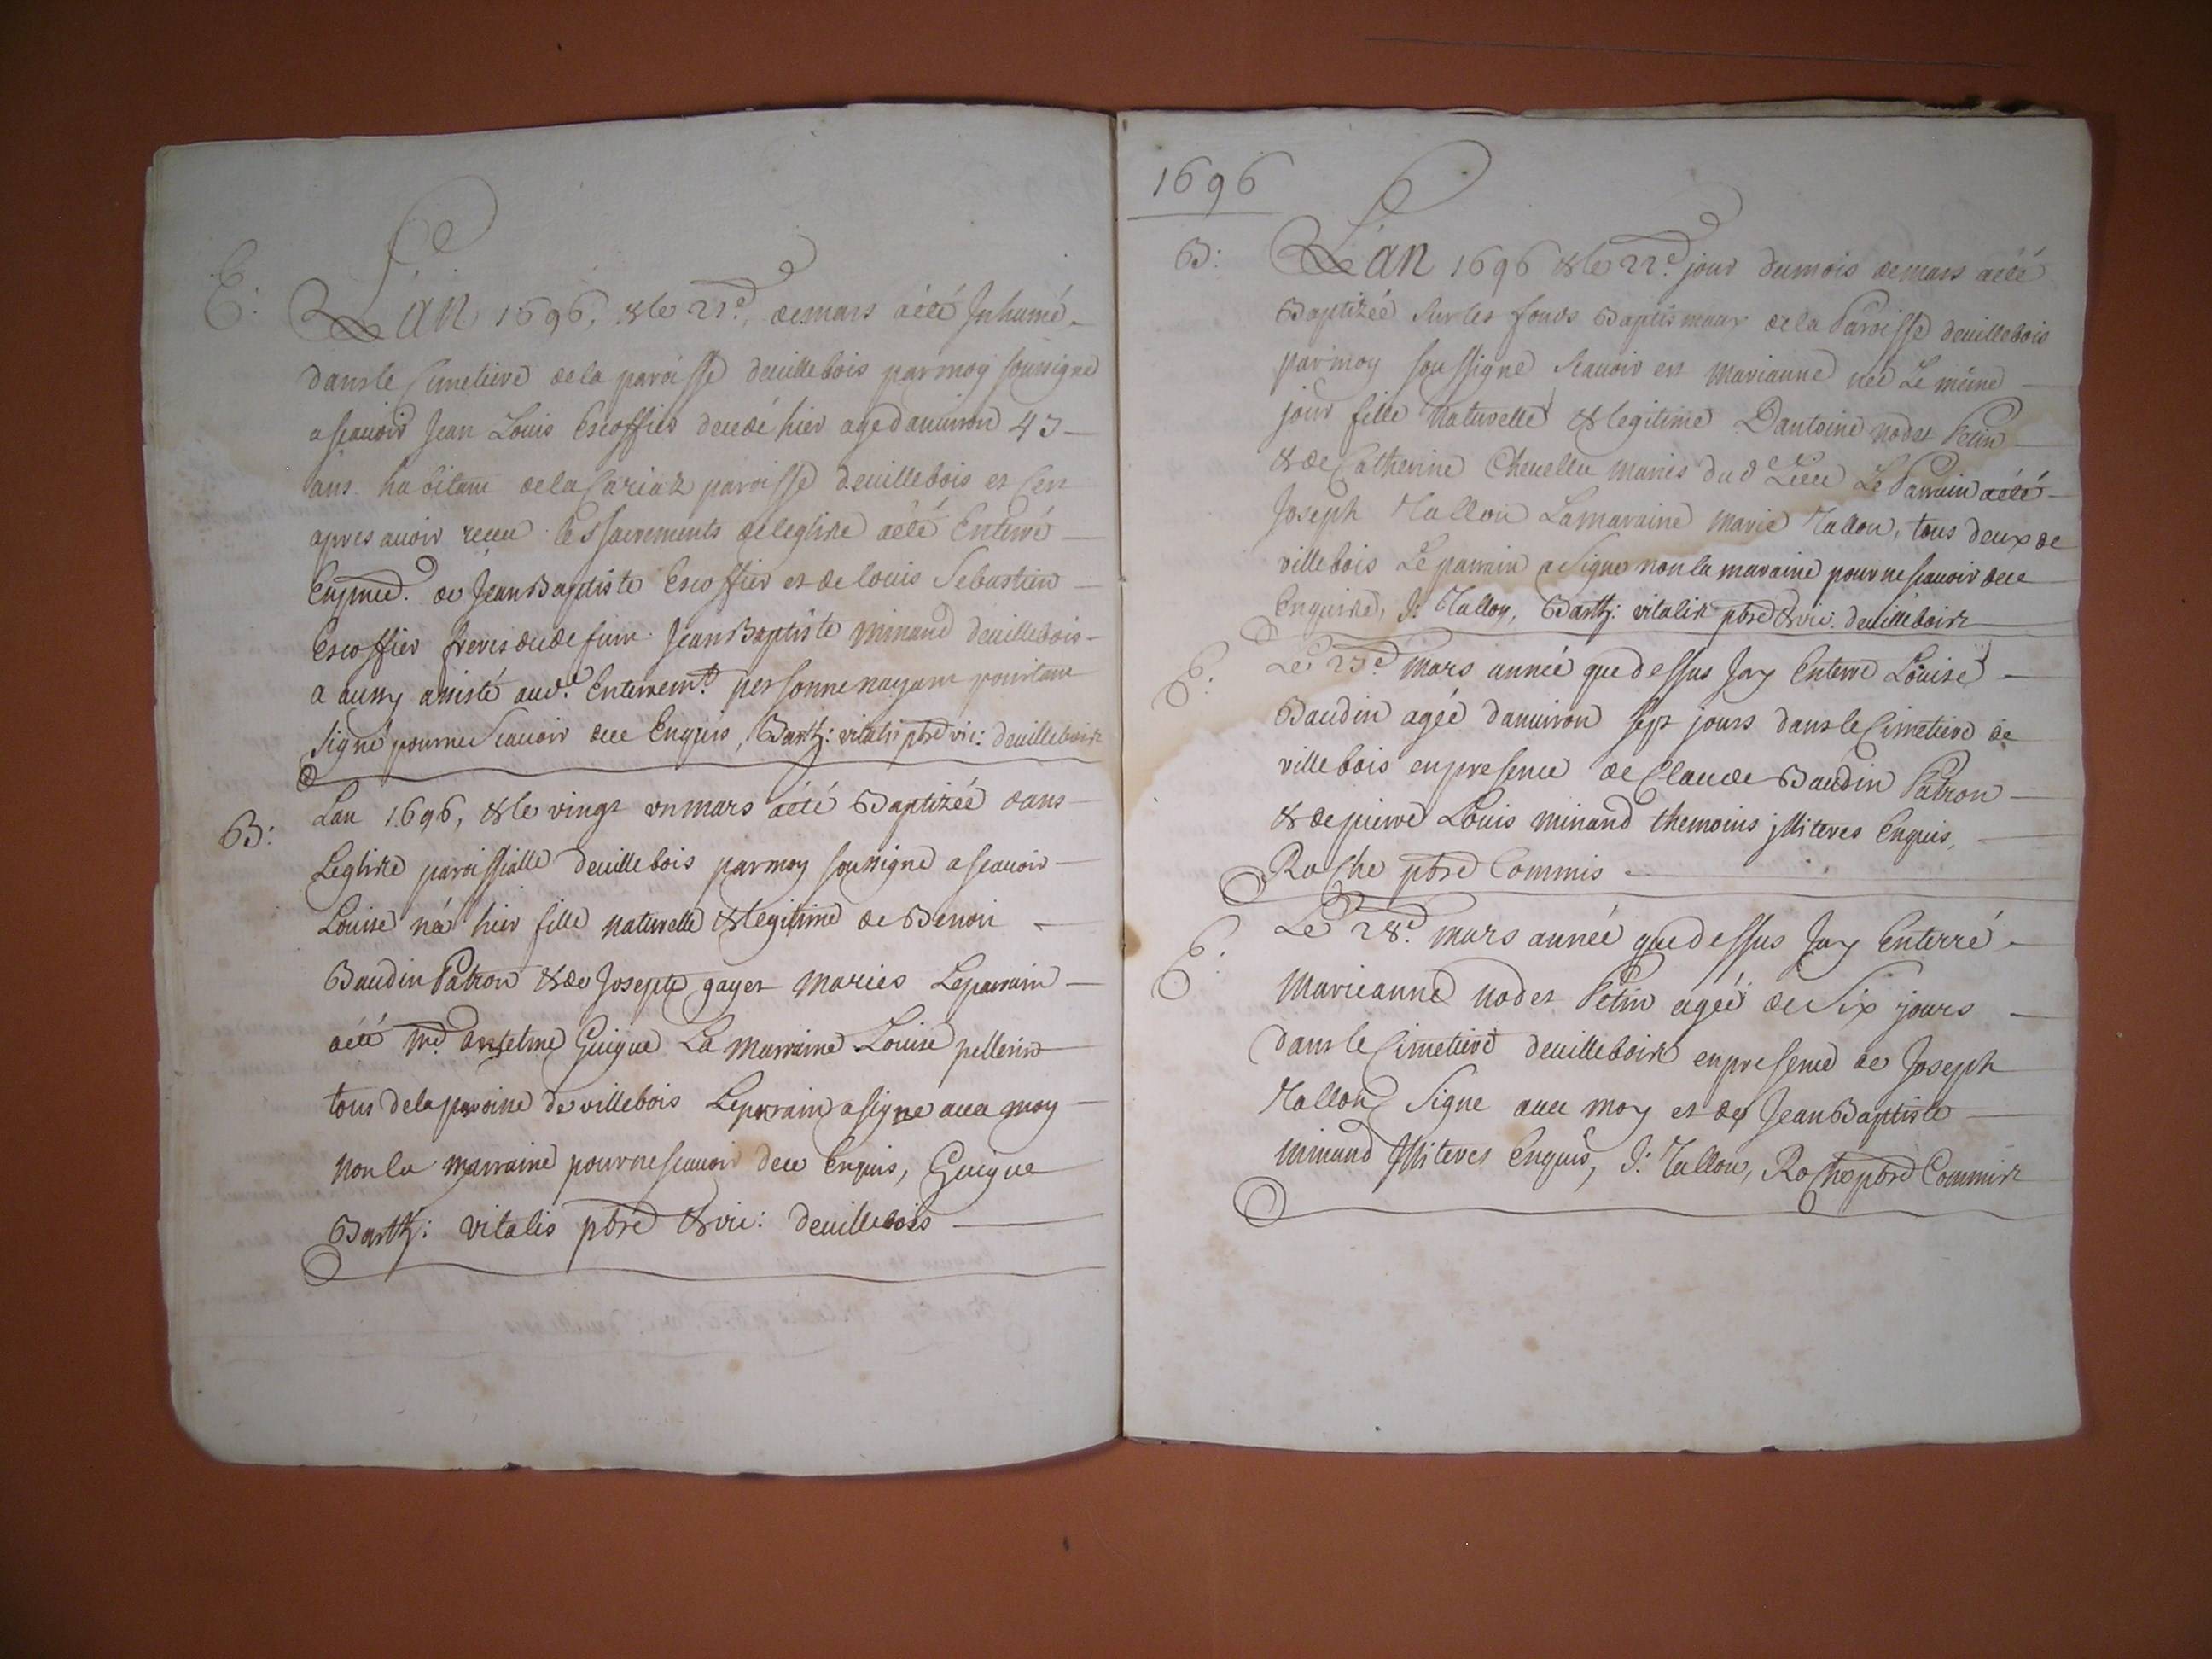 E:
L'an 1696, & le 21e. demars aété Inhumé
dans le Cimetiere dela paroisse deuillebois parmoy soussigne
ascauoir Jean Louis Escoffier decedé hier age danuiron 43
ans habitant dela Cariaz paroisse deuillebois et Cest
apres auoir receu les sacrements deleglise aété Enterré
Enpnce. de Jean Baptiste Escoffier et de louis Sebastien
Escoffier freres dudefunt Jean Baptiste minand deuillebois
a aussy assisté aud. Enterremt. personne nayant pourtant
signé pourne scauoir dece Enquis, Barth: vitalis pbre vic: deuillebois
B:
Lan 1696, & le vingt vn mars aété Baptizée dans
Leglise paroissialle deuillebois parmoy soussigne ascauoir
Louise né hier fille naturelle & legitime de Benoit
Baudin Patron & de Josepte gayet mariés Leparrain
aété Mr. anselme Guigue La marraine Louise pellerin
tous delaparoisse de villebois Leparrain asigne auec moy
non la marraine pourne scauoir dece Enquis, Guigue
Barth: vitalis pbre & vic: deuillebois
1696
B:
L'an 1696 & le 22e. jour dumois demars aété
Baptizée sur les fonds Baptismaux dela Paroisse deuillebois
parmoy soussigne scauoir est marianne née Le même
jour fille naturelle & legitime Dantoine nodet Petin
& de Catherine Cheuellu mariés dud Lieu Le Parrain aété
Joseph Tallon Lamaraine marie Tallon, tous deux de
villebois Le parrain a signe non la maraine pour ne scauoir dece
Enquise, J: Tallon, Barth: vitalis pbre & vic: deuillebois
E:
Le 23e. mars année que dessus Jay Enterre Louise
Baudin agée danuiron sept jours dans le Cimetiere de
villebois enpresence de Claude Baudin Patron
& de pierre Louis minand themoins jlliteres Enquis,
Roche pbre Commis
E:
Le 28e. mars année que dessus Jay Enterré
Marieanne nodet Petin agée de Six jours
dans le Cimetiere deuillebois enpresence de Joseph
Tallon Signe auec moy et de Jean Baptiste
minand Jlliteres Enquis, J: Tallon, Roche pbre Commis